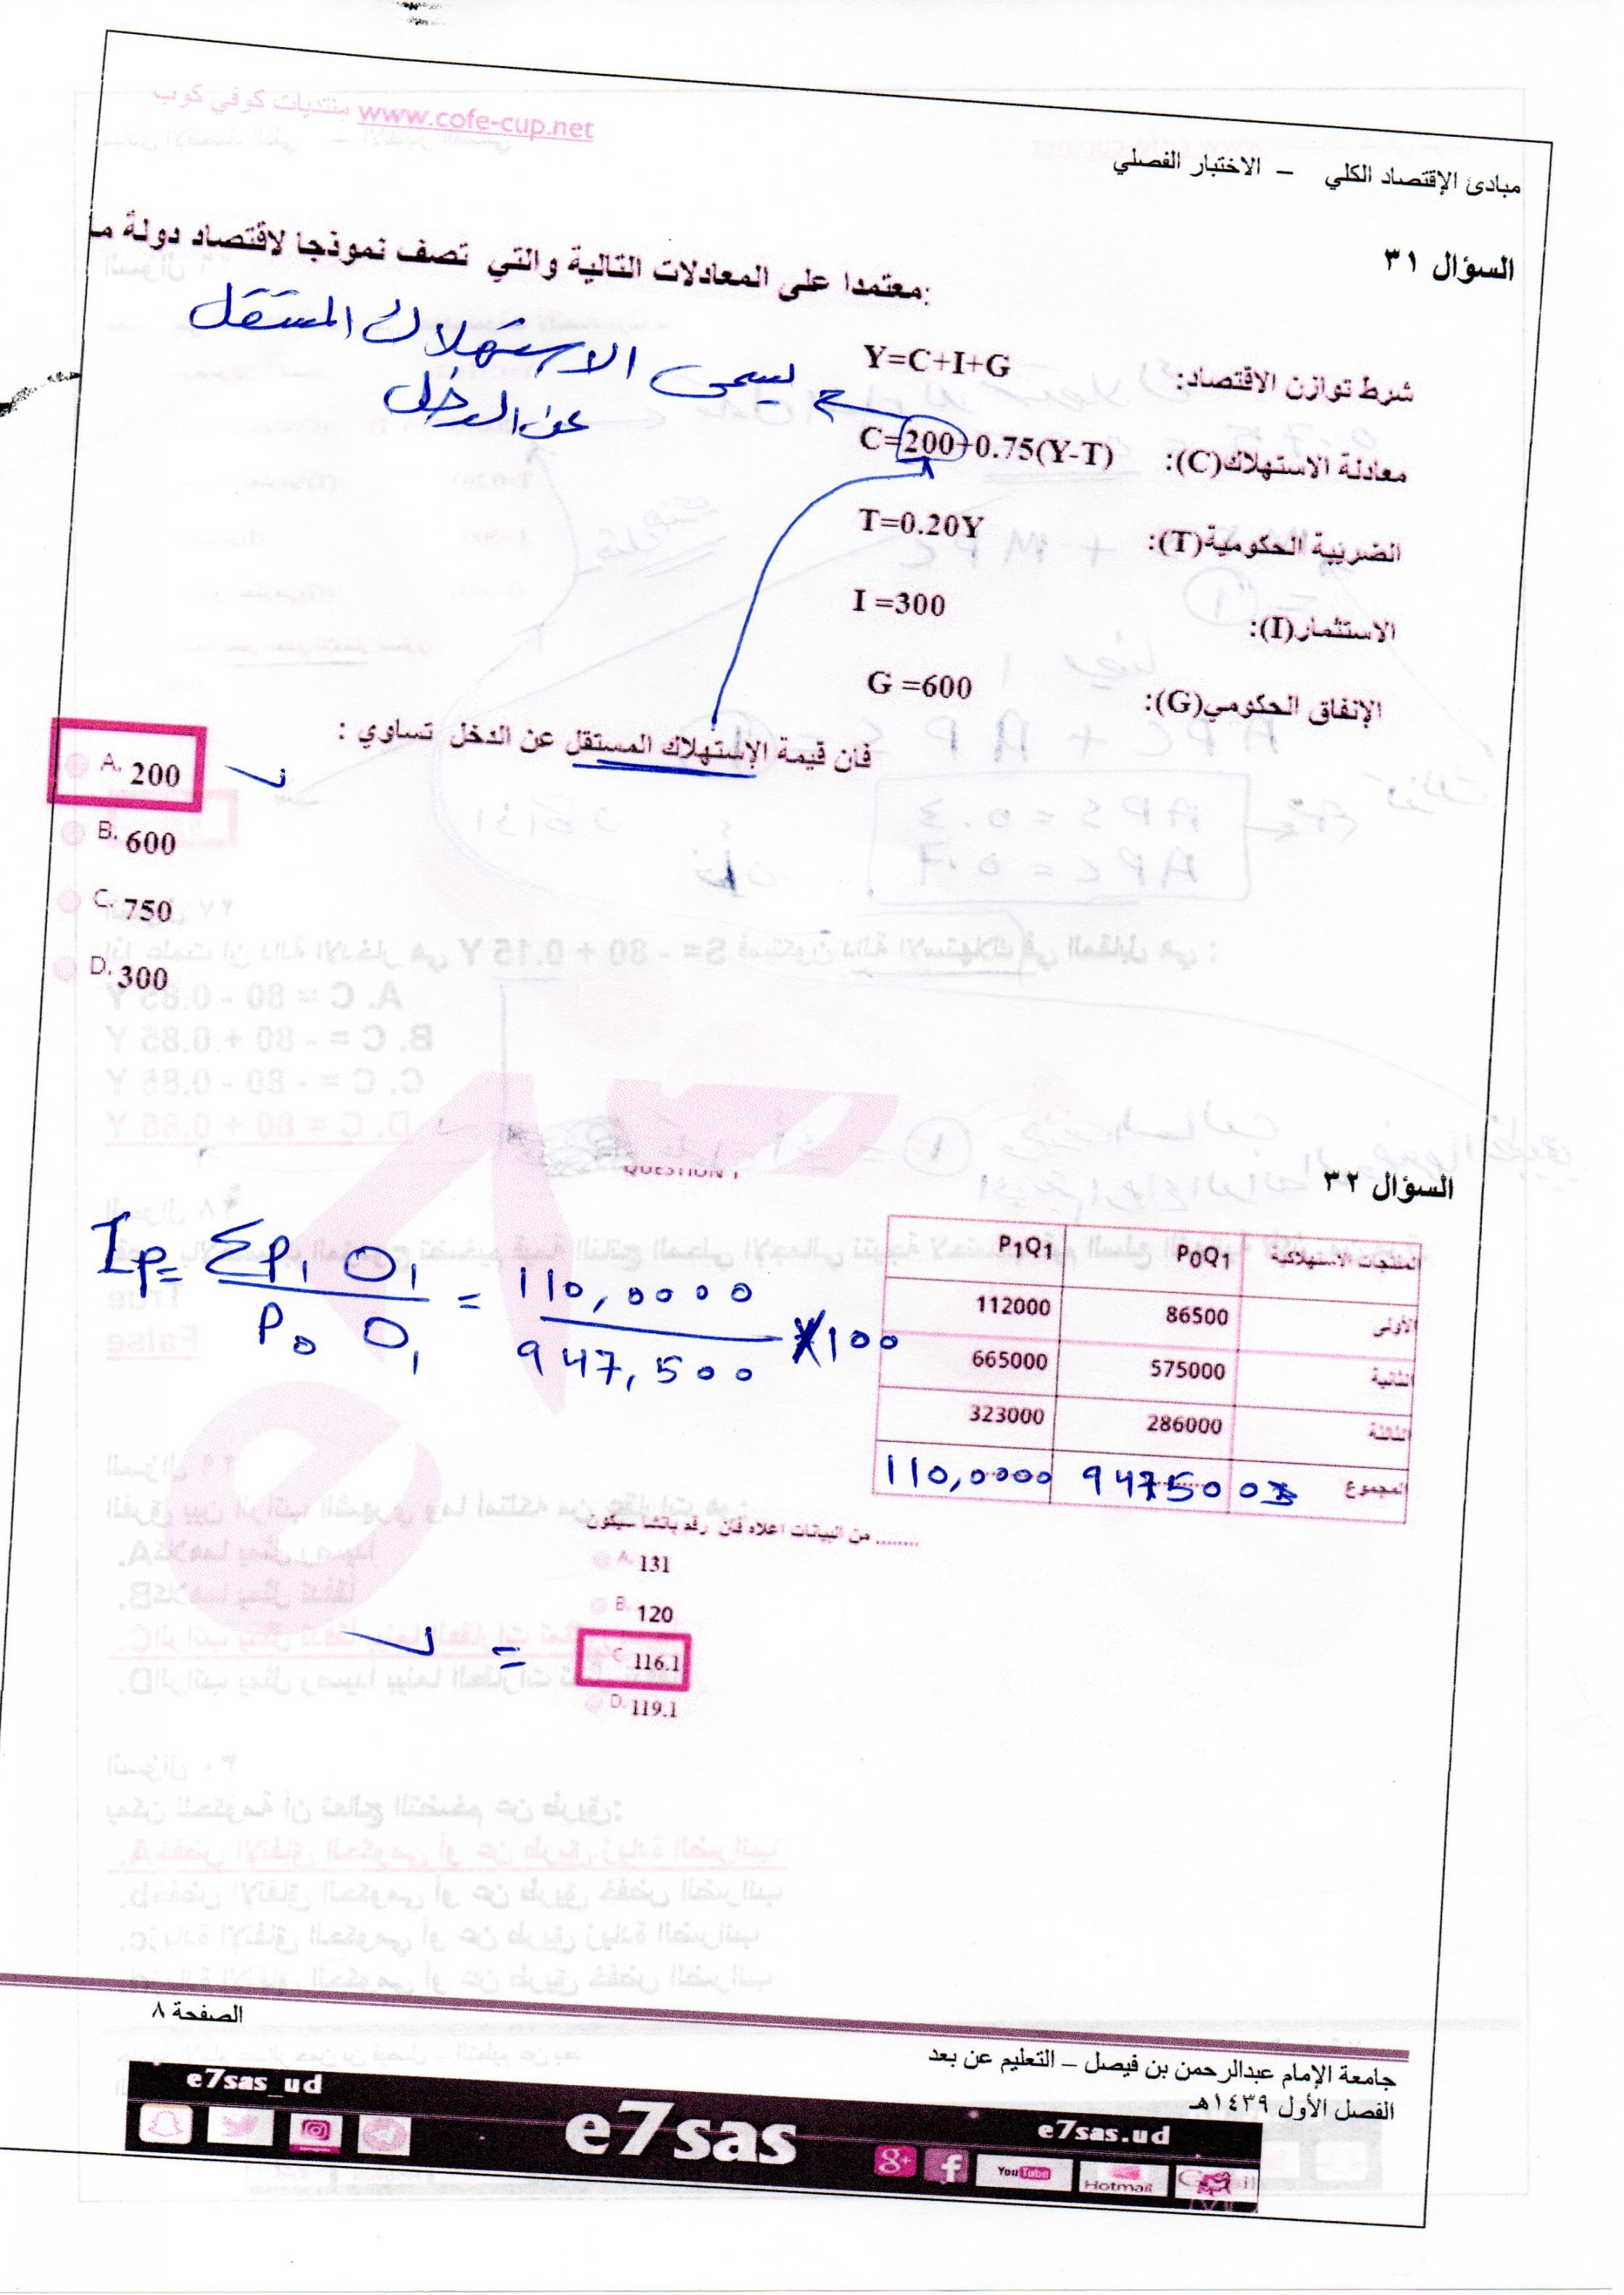 منتديات كوفي كوب www.cofe-cup.net
مبادئ الإقتصاد الكلي – الاختبار الفصلي
السؤال ٣١
معتمدا على المعادلات التالية والتي تصف نموذجا لاقتصاد دولة ما:
شرط توازن الاقتصاد: Y=C+I+G
يسمى الاستهلاك المستقل
عن الدخل
معادلة الاستهلاك(C): C=200+0.75(Y-T)
الضريبة الحكومية(T): T=0.20Y
الاستثمار(I): I =300
الإنفاق الحكومي(G): G =600
فان قيمة الإستهلاك المستقل عن الدخل تساوي :
A. 200
B. 600
C. 750
D. 300
QUESTION 1
السؤال ٣٢
المنتجات الاستهلاكية P0Q1 P1Q1
الأولى 86500 112000
الثانية 575000 665000
الثالثة 286000 323000
المجموع 947500 110,0000
Ip = ΣP1 Q1 / P0 Q1 = 110,0000 / 947,500 X100
من البيانات اعلاه فان رقم باتشا سيكون ........
A. 131
B. 120
= C. 116.1
D. 119.1
الصفحة ٨
جامعة الإمام عبدالرحمن بن فيصل – التعليم عن بعد
الفصل الأول ١٤٣٩هـ
e7sas_ud
e7sas
e7sas.ud
8+ f YouTube Hotmail Gmail